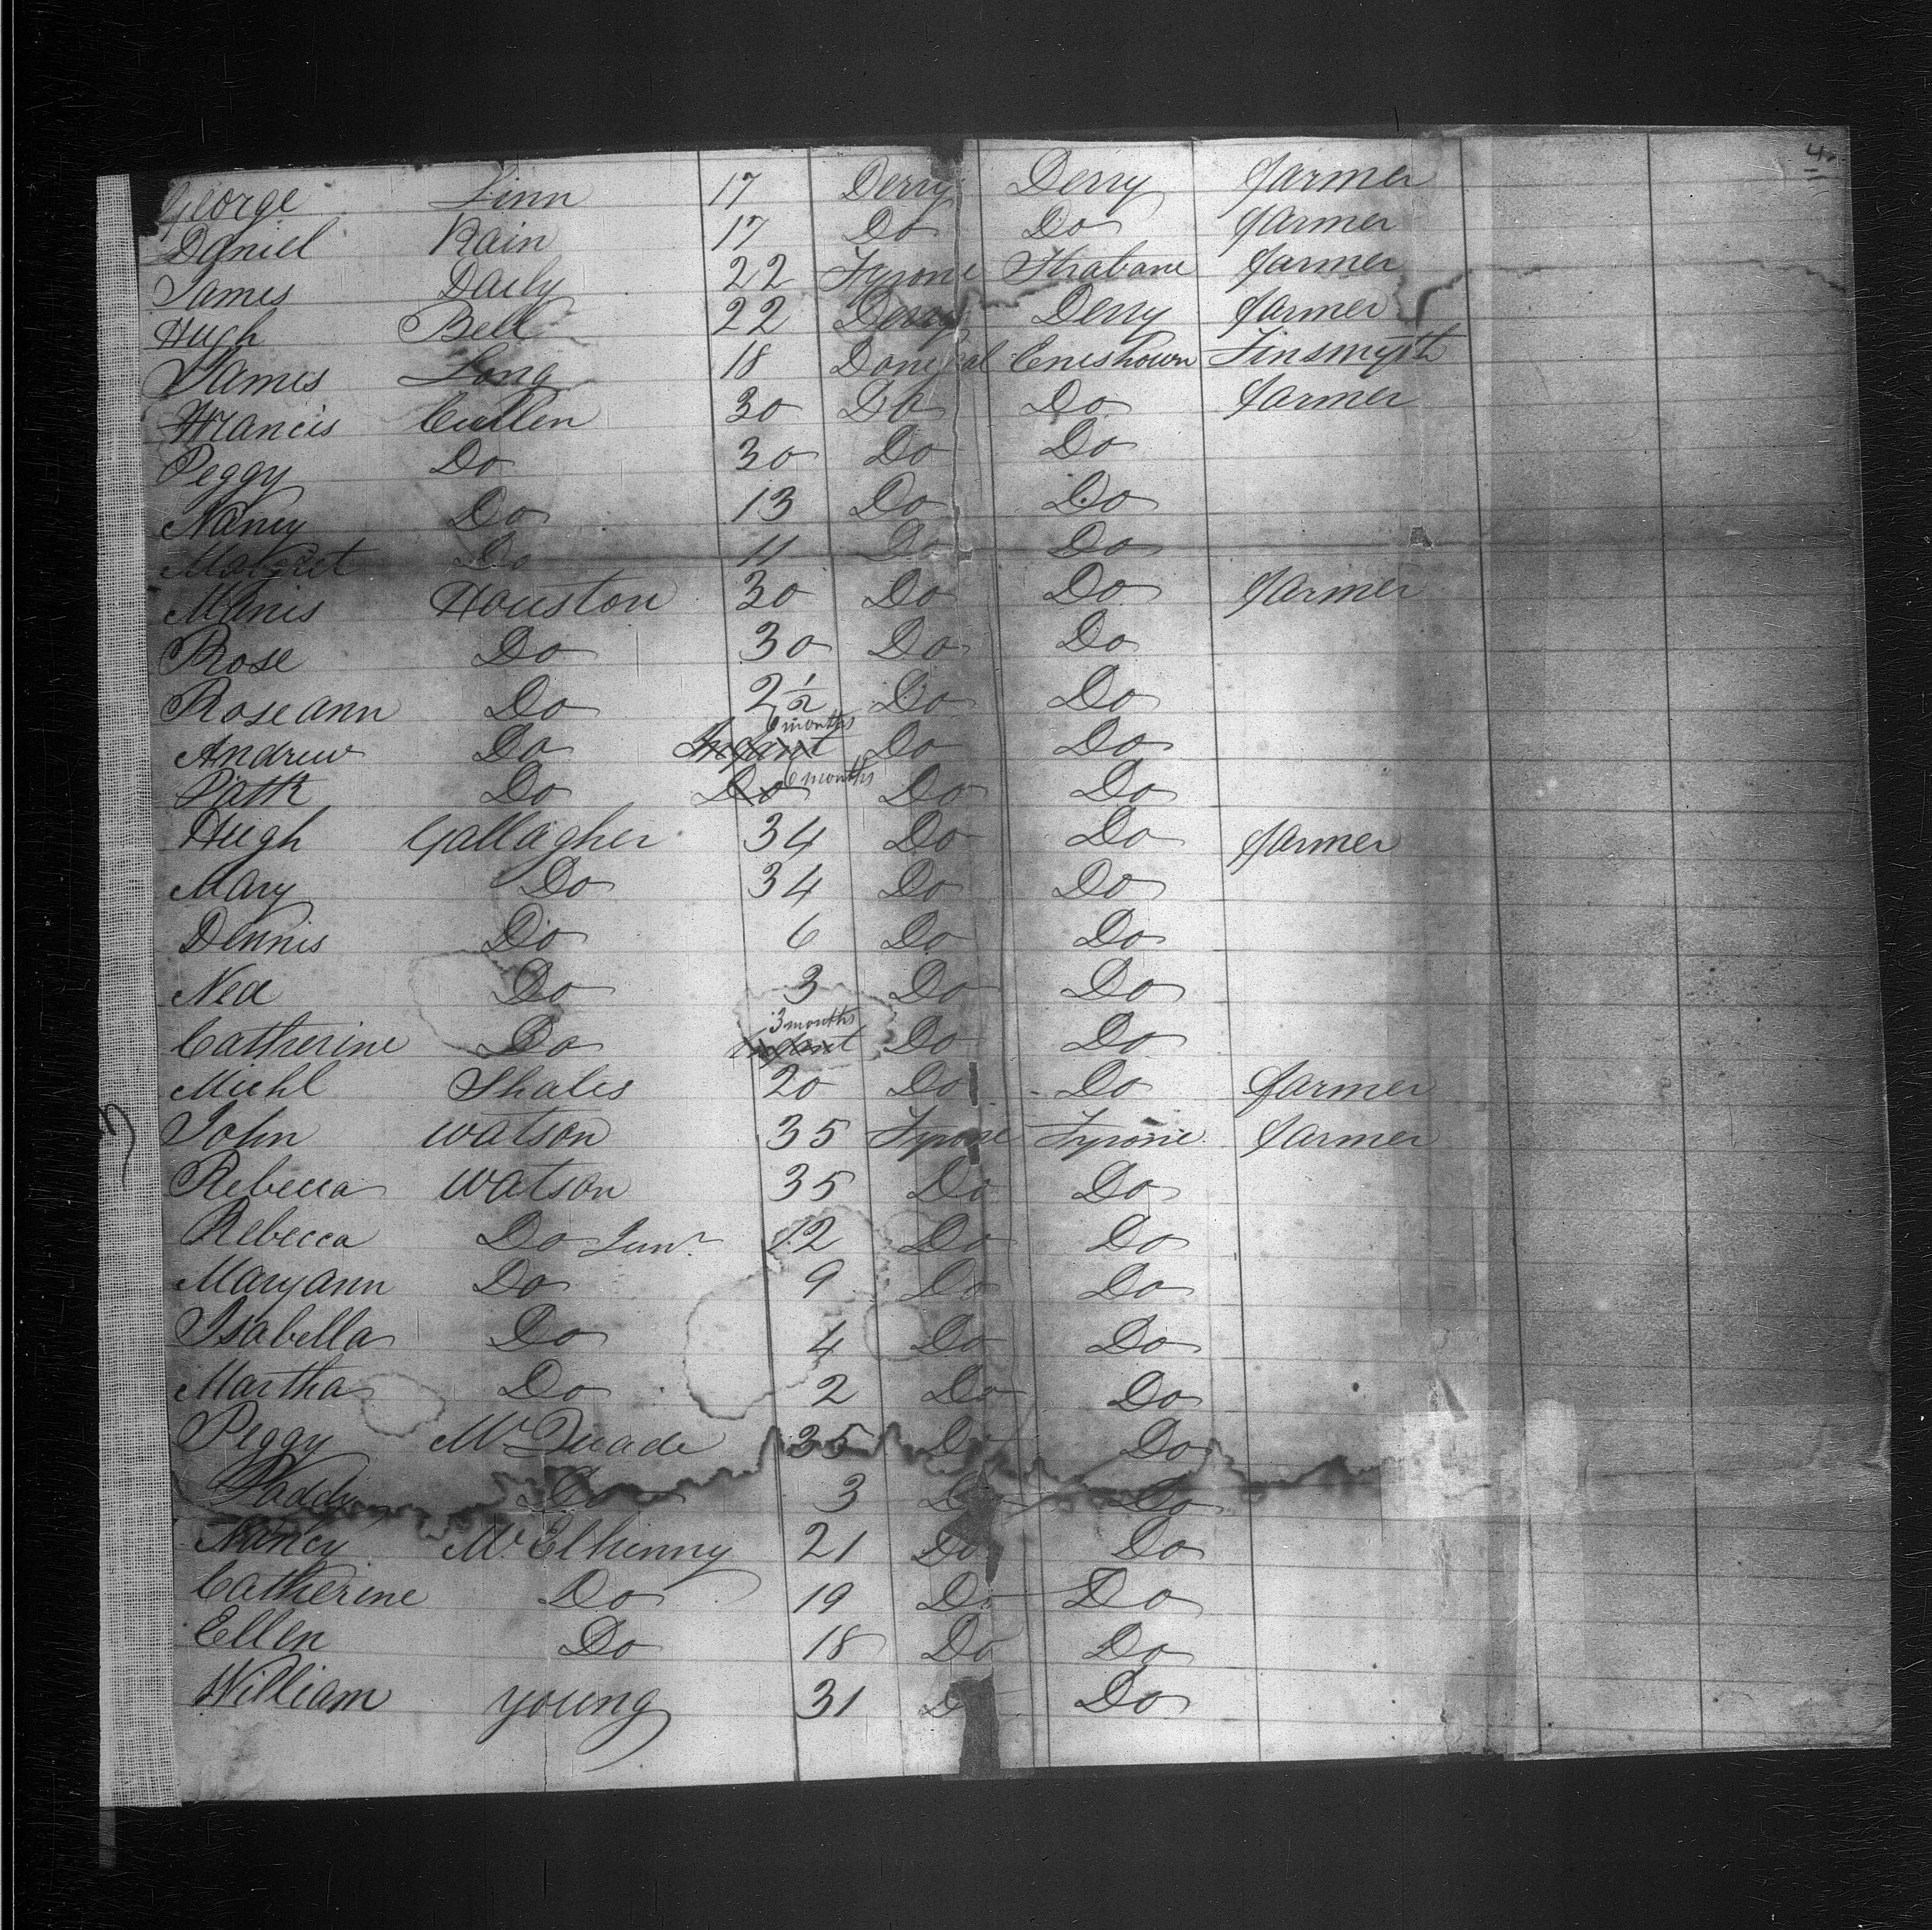 4.
George Linn 17 Derry Derry farmer
Daniel Kain 17 Do Do farmer
James Daily 22 Tyrone Strabane farmer
Hugh Bell 22 Derry Derry farmer
James Long 18 Donegal Enishown Tinsmyth
Francis Cullen 30 Do Do farmer
Peggy Do 30 Do Do
Nancy Do 13 Do Do
Margret Do 11 Do Do
Manis Houston 30 Do Do farmer
Rose Do 30 Do Do
Roseann Do 2 1/2 Do Do
6 months
Andrew Do Infant Do Do
6 months
Patk Do Do Do Do
Hugh Gallagher 34 Do Do farmer
Mary Do 34 Do Do
Dennis Do 6 Do Do
Ned Do 3 Do Do
3 months
Catherine Do Infant Do Do
Michl Shales 20 Do Do farmer
John Watson 35 Tyrone Tyrone farmer
Rebecca Watson 35 Do Do
Rebecca Do Junr 12 Do Do
Maryann Do 9 Do Do
Isabella Do 4 Do Do
Martha Do 2 Do Do
Peggy McQuade 35 Do Do
Paddy Do 3 Do Do
Nancy McElhinny 21 Do Do
Catherine Do 19 Do Do
Ellen Do 18 Do Do
William young 31 Do Do